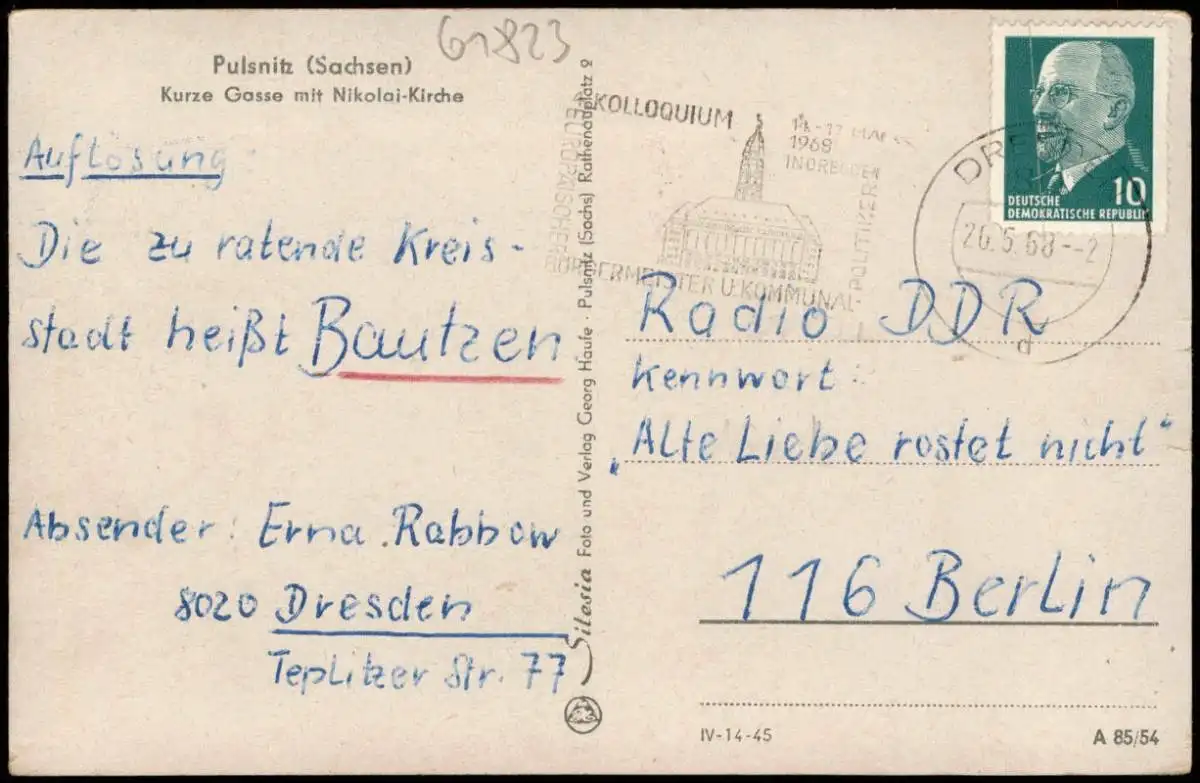 61823
Pulsnitz (Sachsen)
Kurze Gasse mit Nikolai-Kirche
Auflösung
Die zu ratende Kreis-
stadt heißt Bautzen
Absender: Erna Rabbow
8020 Dresden
Teplitzer Str. 77
Silesia Foto und Verlag Georg Haufe · Pulsnitz (Sachs) Rathenauplatz 2
KOLLOQUIUM
EUROPÄISCHER
BÜRGERMEISTER U. KOMMUNAL-
POLITIKER
1968
IN DRESDEN
26.5.68--2
d
DEUTSCHE
DEMOKRATISCHE REPUBLIK
10
Radio DDR
Kennwort:
„Alte Liebe rostet nicht"
116 Berlin
IV-14-45
A 85/54